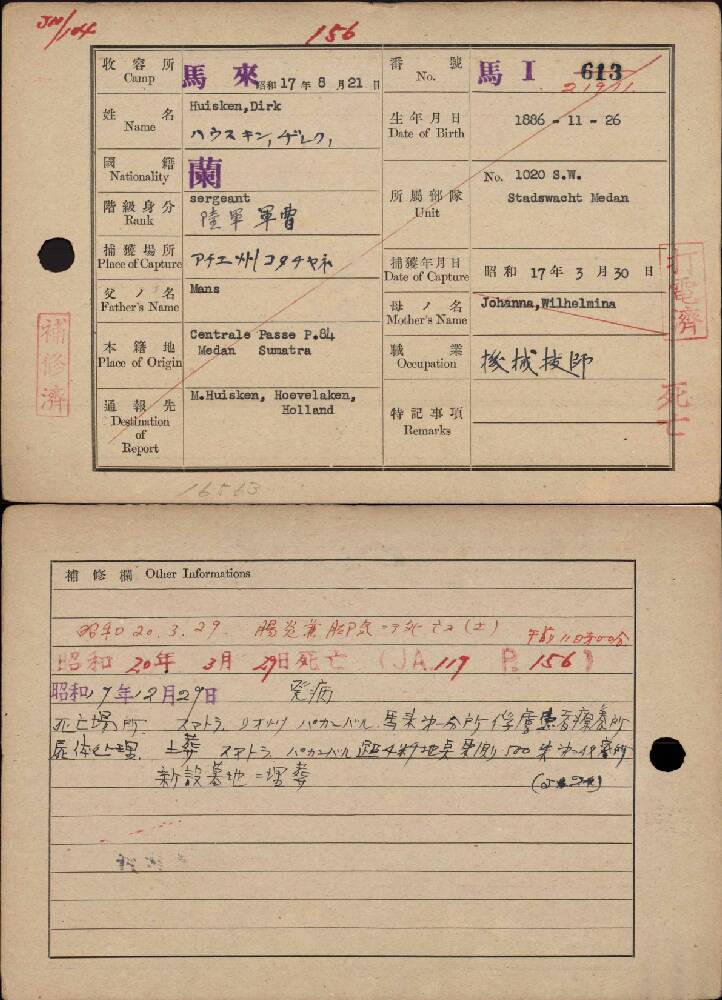 JN/104
156
收容所 Camp 馬來 昭和17年8月21日
番號 No. 馬 I 613
21971
姓名 Name Huisken,Dirk
ハウスキン,デレク,
生年月日 Date of Birth 1886 - 11 - 26
國籍 Nationality 蘭
階級身分 Rank sergeant
陸軍軍曹
所屬部隊 Unit No. 1020 S.W.
Stadswacht Medan
捕獲場所 Place of Capture アチエ州コタチヤネ
捕獲年月日 Date of Capture 昭和 17年 3月 30日
父ノ名 Father's Name Mans
母ノ名 Mother's Name Johanna,Wilhelmina
本籍地 Place of Origin Centrale Passe P.84
Medan Sumatra
職業 Occupation 機械技師
通報先 Destination of Report M.Huisken, Hoevelaken,
Holland
特記事項 Remarks
補修濟
打電濟
死亡
16563
補修欄 Other Informations
昭和20.3.29. 腸炎兼脚気ニテ死亡ス(土) 午前11時00分
昭和 20年 3月 29日死亡 (JA.119 P.156)
昭和19年12月29日 発病
死亡場所 スマトラ リオ州 パカンバル 馬来第一分所俘虜患者療養所
屍体処理 土葬 スマトラ パカンバル
新設墓地ニ埋葬